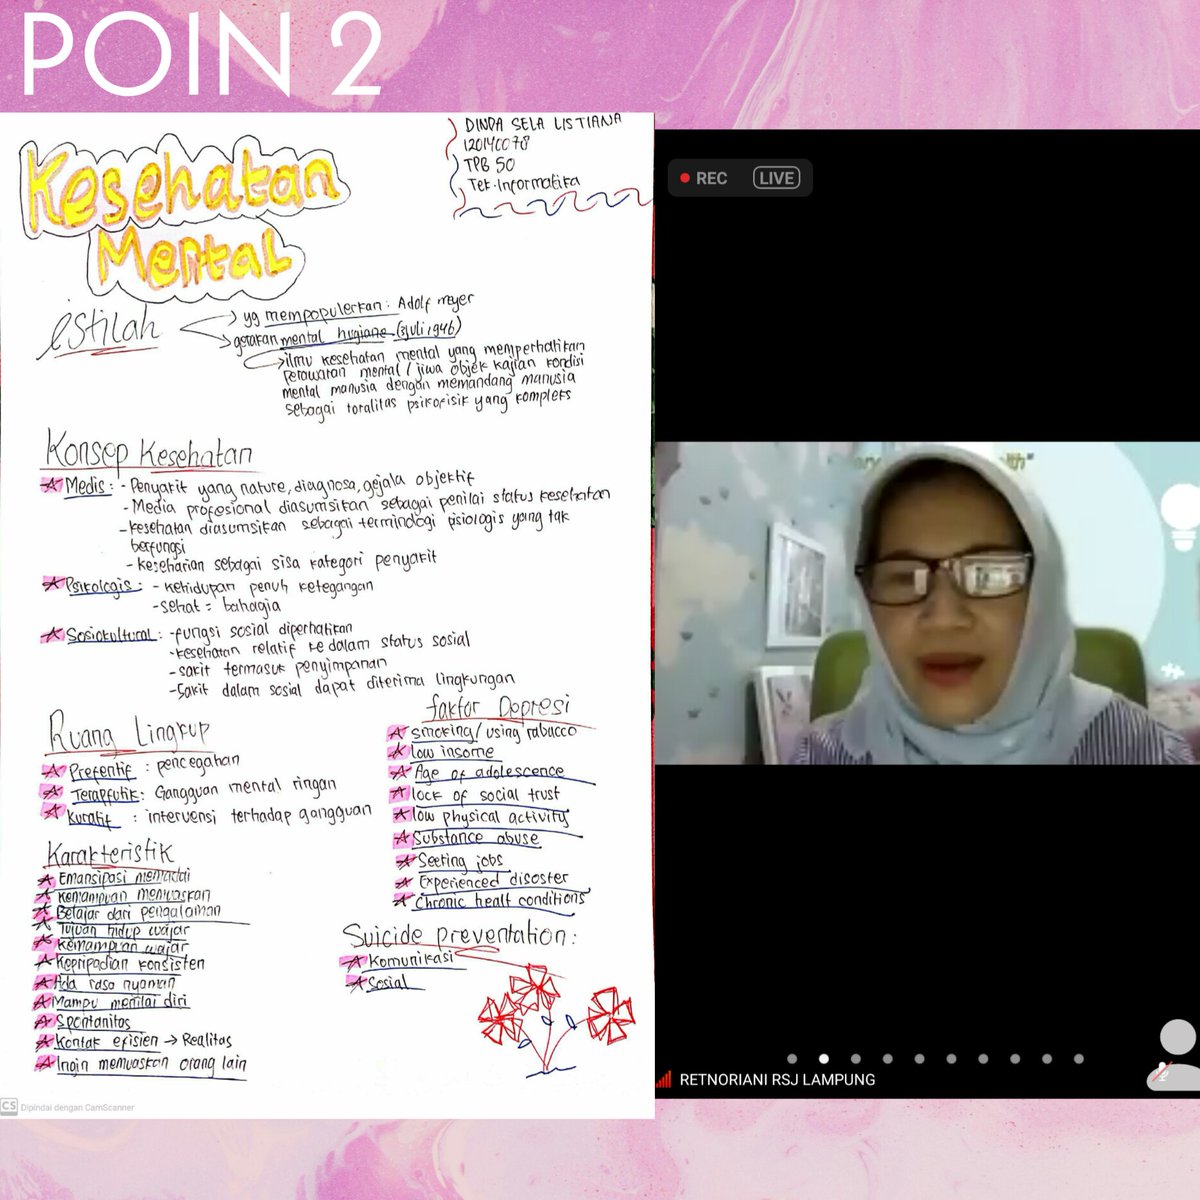 POIN 2
DINDA SELA LISTIANA
120140078
TPB 50
Tek.Informatika
Kesehatan
Mental
istilah
yg mempopulerkan: Adolf meyer
gerakan mental hygiane (3juli 1946)
ilmu kesehatan mental yang memperhatikan
perawatan mental / jiwa objek kajian kondisi
mental manusia dengan memandang manusia
sebagai toralitas psikofisik yang kompleks
Konsep Kesehatan
Medis: - Penyakit yang nature, diagnosa, gejala objektif
- Media profesional diasumsikan sebagai penilai status kesehatan
- kesehatan diasumsikan sebagai terminologi psiologis yang tak
berfungsi
- keseharian sebagai sisa kategori penyakit
Psikologis: - kehidupan penuh ketegangan
- sehat = bahagia
Sosiokultural: - fungsi sosial diperhatikan
- kesehatan relatif ke dalam status sosial
- sakit termasuk penyimpanan
- Sakit dalam sosial dapat diterima lingkungan
Ruang Lingkup
Prefentif : pencegahan
Terapfutik: Gangguan mental ringan
Kuratif : intervensi terhadap gangguan
faktor Depresi
smoking/ using tabacco
low insome
Age of adolescence
lock of social trust
low physical activity
Substance abuse
Seeting jobs
Experienced disoster
Chronic healt conditions
Karakteristik
Emansipasi memadai
Kemampuan memuaskan
Belajar dari pengalaman
Tujuan hidup wajar
Kemampuan wajar
Kepripadian konsisten
Ada rasa nyaman
Mampu menilai diri
Spontanitas
Kontak efisien → Realitas
Ingin memuaskan orang lain
Suicide preventation:
Komunikasi
Sosial
CS Dipindai dengan CamScanner
REC LIVE
RETNORIANI RSJ LAMPUNG